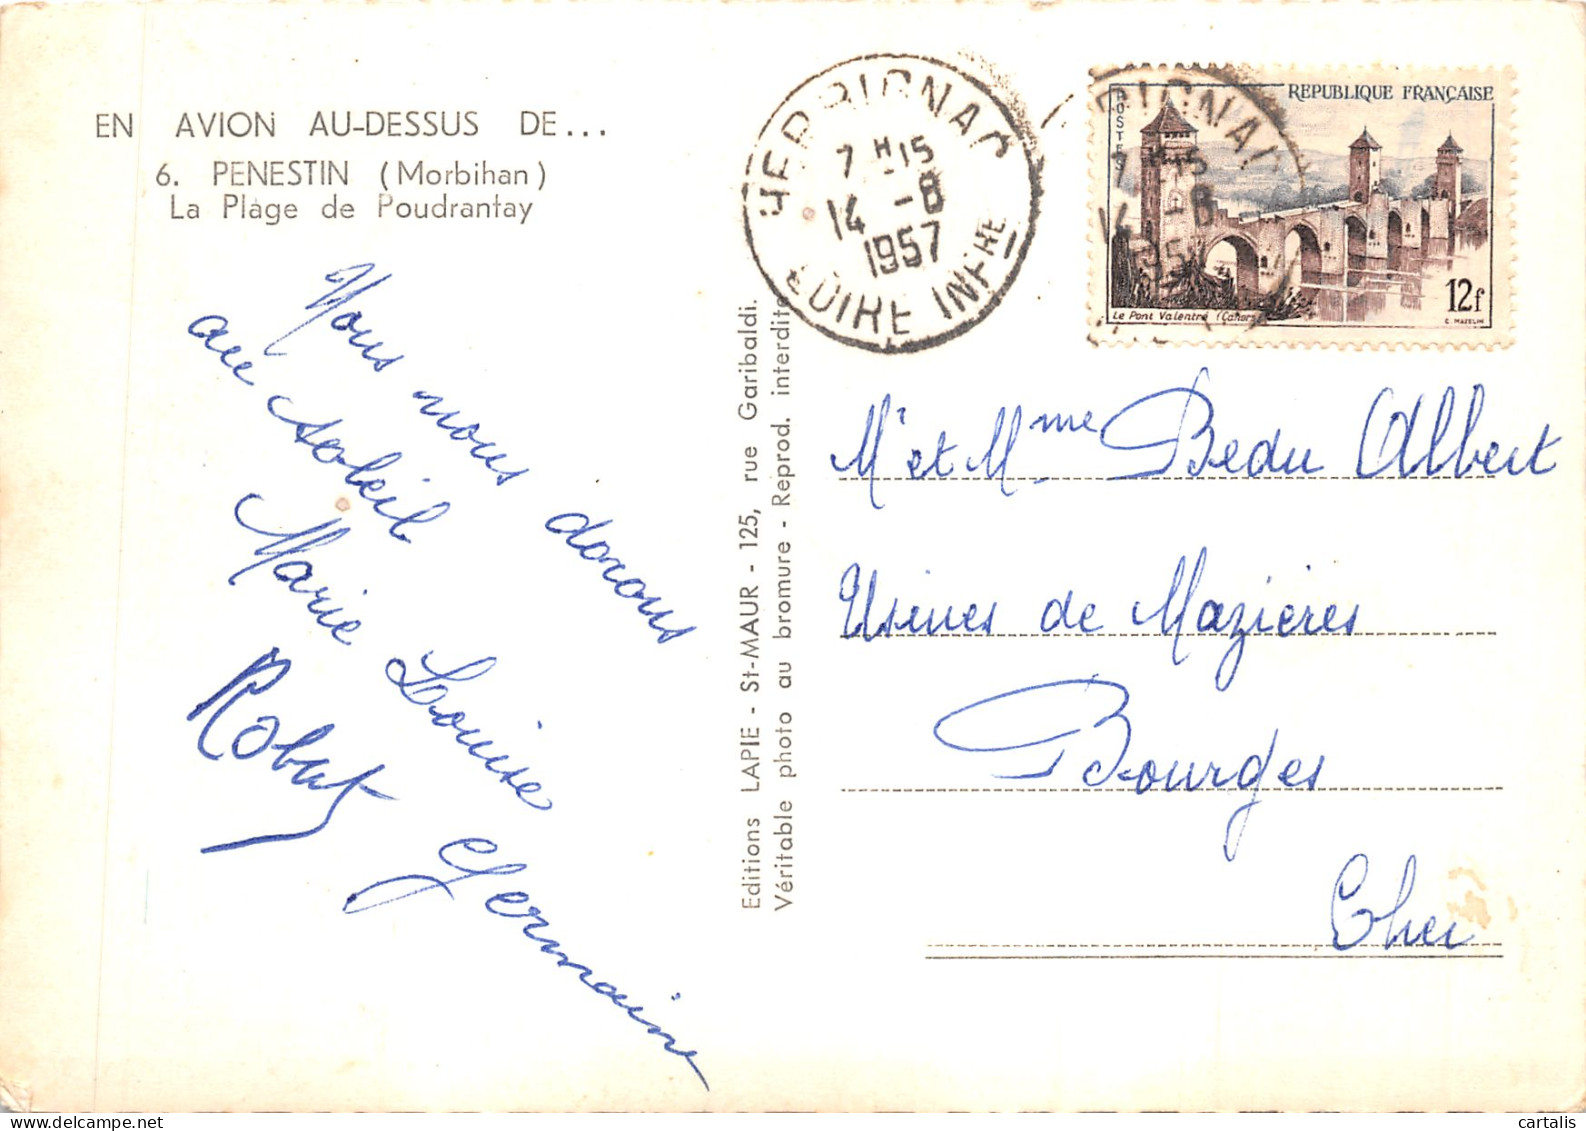 EN AVION AU-DESSUS DE...
6. PENESTIN (Morbihan)
La Plage de Poudrantay
Nous nous dorons
au soleil
Marie Louise
Robert
Germaine
Editions LAPIE - St-MAUR - 125, rue Garibaldi.
Véritable photo au bromure - Reprod. interdite
HERBIGNAC
7 H 15
14 - 8
1957
LOIRE INFRE
REPUBLIQUE FRANÇAISE
POSTES
12f
Le Pont Valentré (Cahors)
C. MAZELIN
Mr et Mme Bedu Albert
Usines de Mazières
Bourges
Cher
cartalis